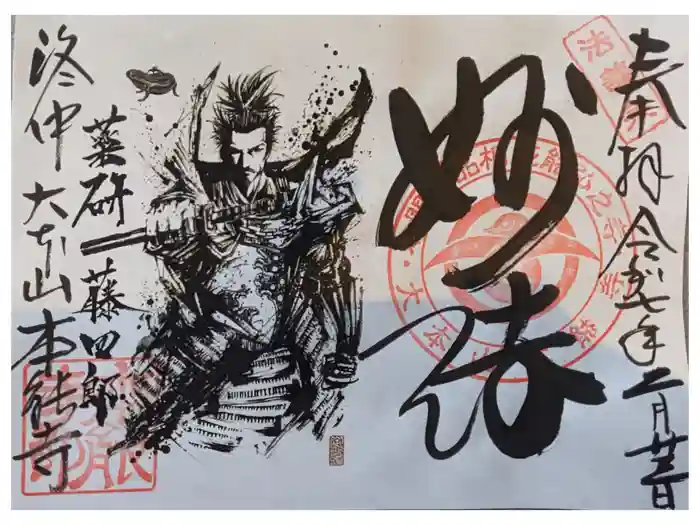 奉拝
令和七年二月廿三日
妙法
薬研 藤四郎
洛中 大本山 本能寺